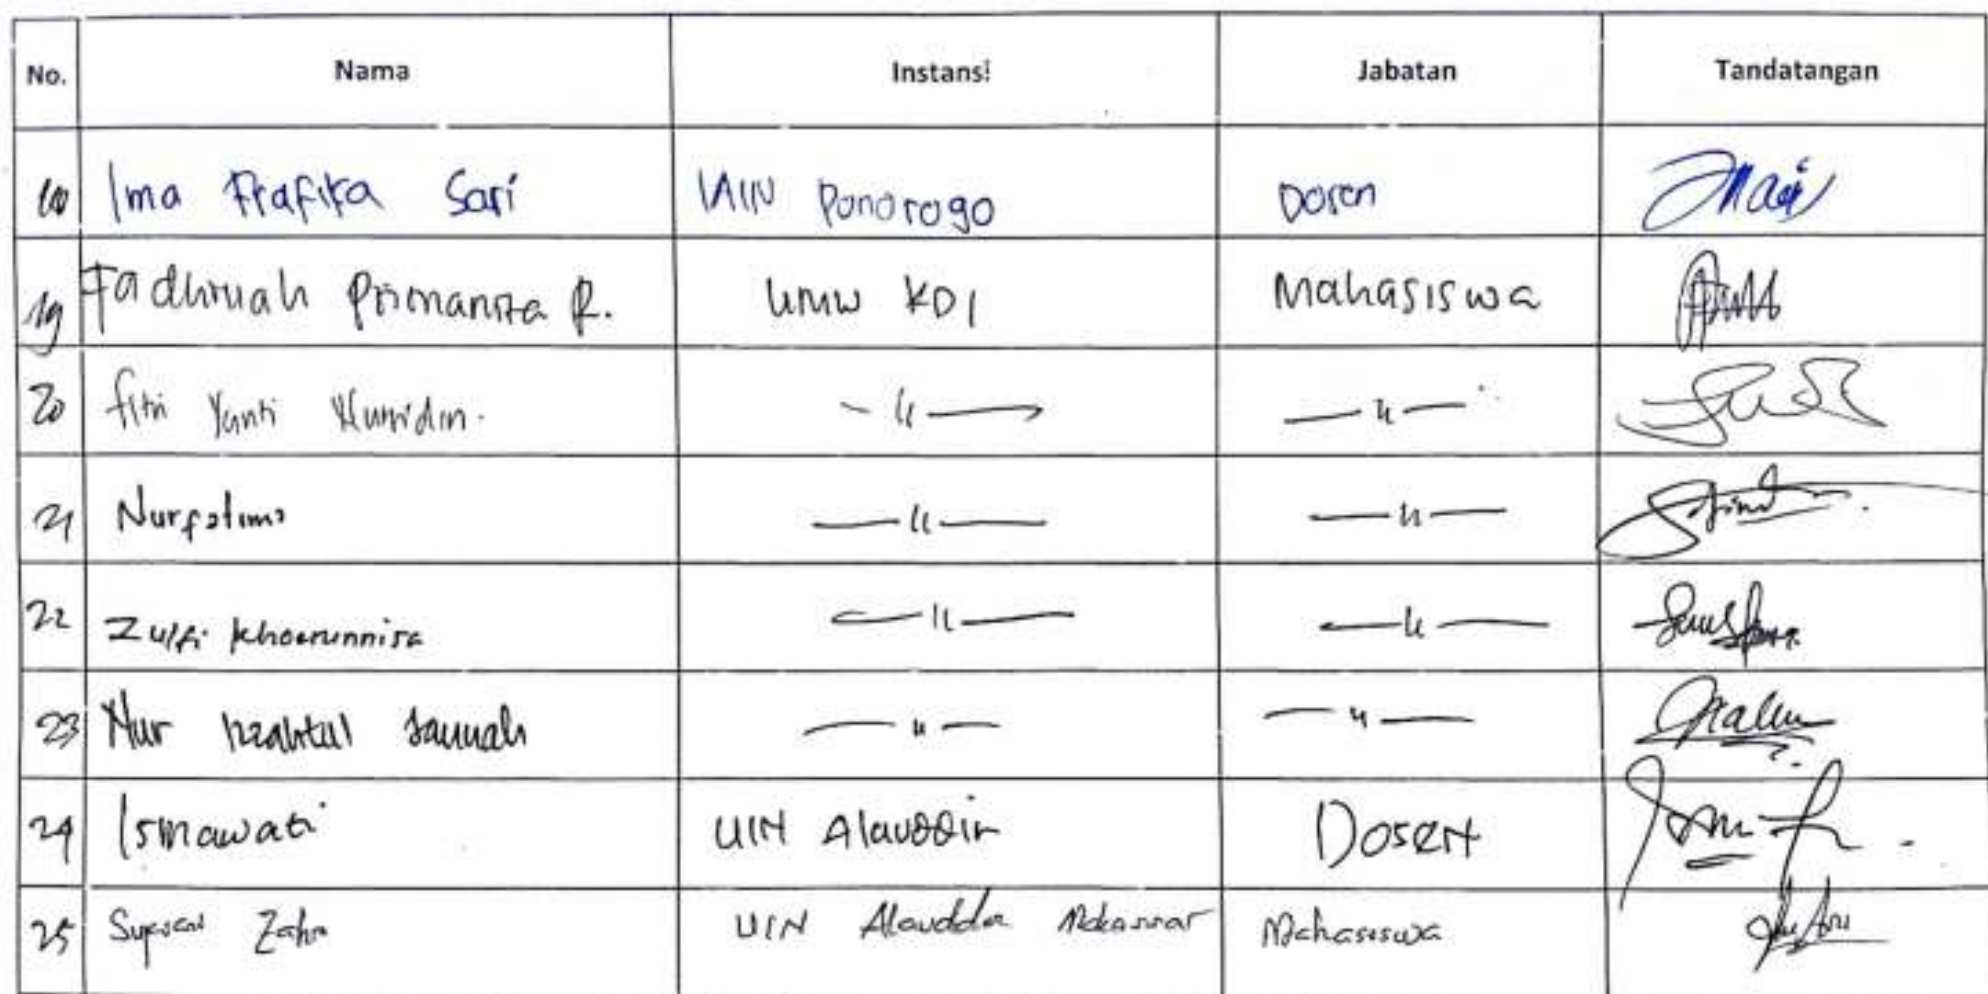 No. Nama Instansi Jabatan Tandatangan
Ima Frafika Sari IAIN Ponorogo Dosen
19 Fadhilah Primanita R. UMW KDI Mahasiswa
20 Fitri Yanti 〃 〃
21 Nurfatima 〃 〃
22 Zulfi Khoerunnisa 〃 〃
23 Nur Izzahtul Jannah 〃 〃
24 Ismawati UIN Alauddin Dosen
25 Zahra UIN Alauddin Makassar Mahasiswa